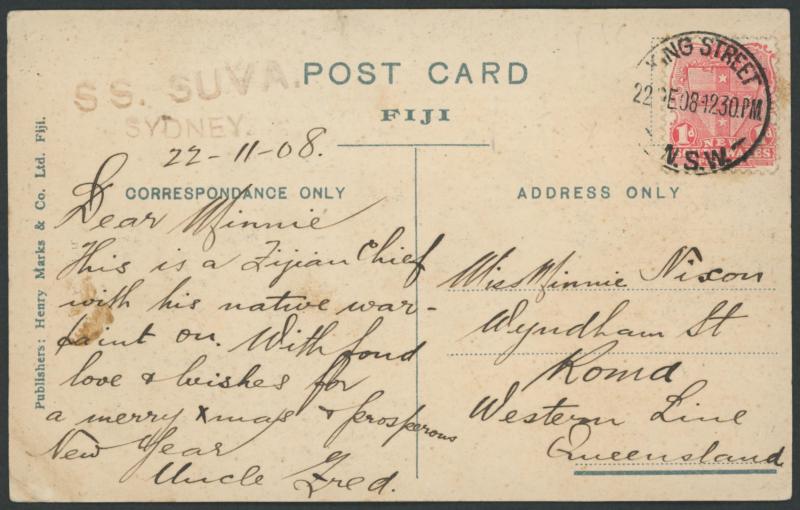 POST CARD
FIJI
SS. SUVA.
SYDNEY.
KING STREET
22 DE 08-12.30.PM
N.S.W.
1d
NEW
WALES
22-11-08.
CORRESPONDANCE ONLY
Dear Minnie
This is a Fijian Chief
with his native war-
paint on. With fond
love & wishes for
a merry Xmas & prosperous
New Year
Uncle Fred.
ADDRESS ONLY
Miss Minnie Nixon
Wyndham St
Roma
Western Line
Queensland
Publishers: Henry Marks & Co. Ltd. Fiji.